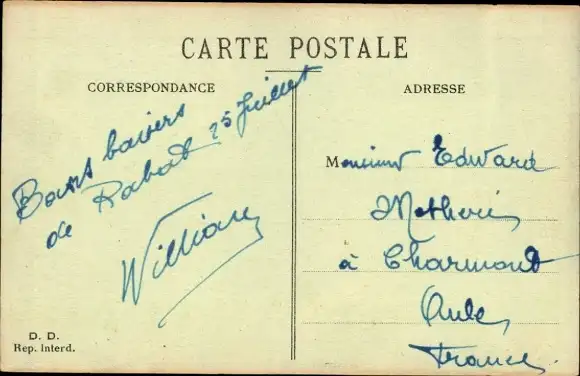 CARTE POSTALE
CORRESPONDANCE
ADRESSE
Bons baisers
de Rabat 25 Juillet
William
Monsieur Edward
à Charmont
Aube
France
D. D.
Rep. Interd.